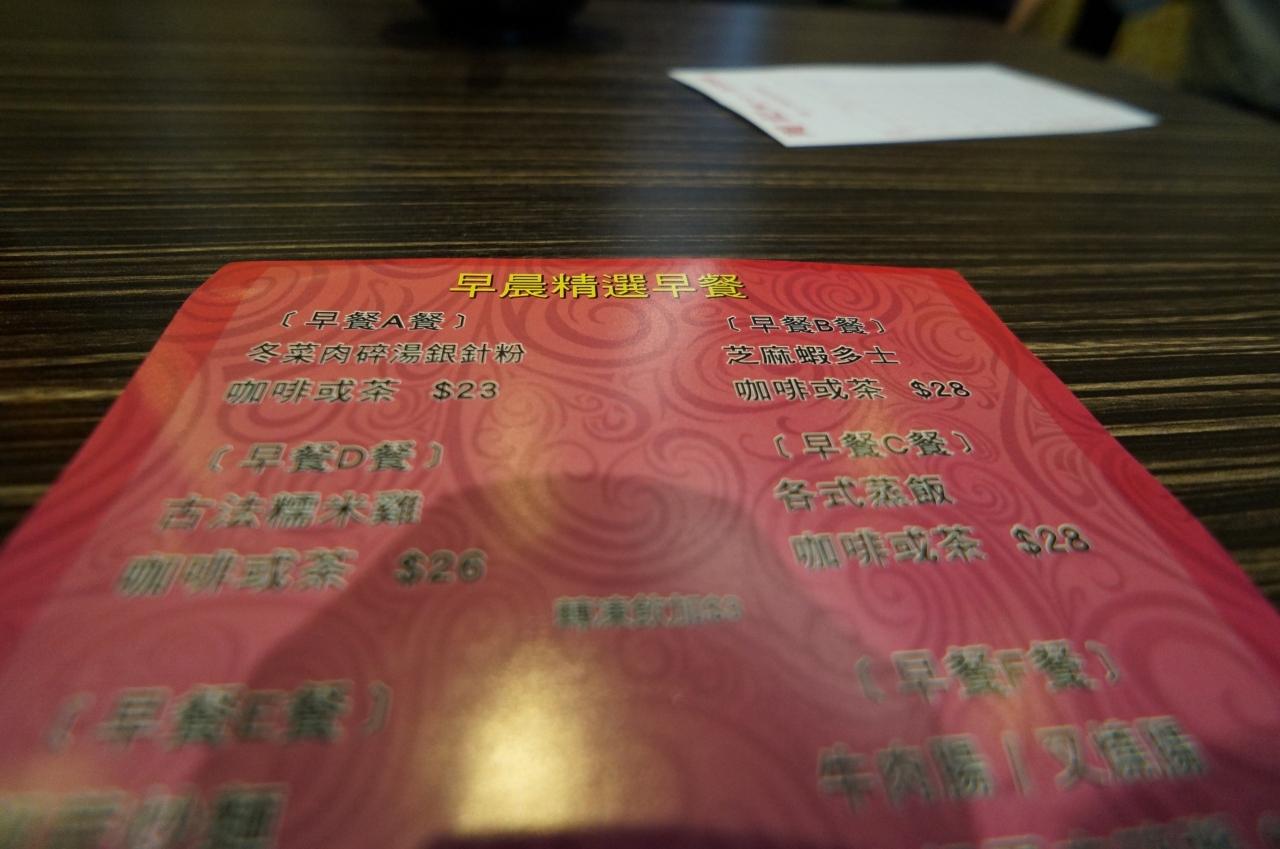 早晨精選早餐
〔早餐A餐〕
冬菜肉碎湯銀針粉
咖啡或茶 $23
〔早餐B餐〕
芝麻蝦多士
咖啡或茶 $28
〔早餐D餐〕
古法糯米雞
咖啡或茶 $26
〔早餐C餐〕
各式蒸飯
咖啡或茶 $28
轉凍飲加$3
〔早餐E餐〕
炒麵
〔早餐F餐〕
牛肉腸/叉燒腸